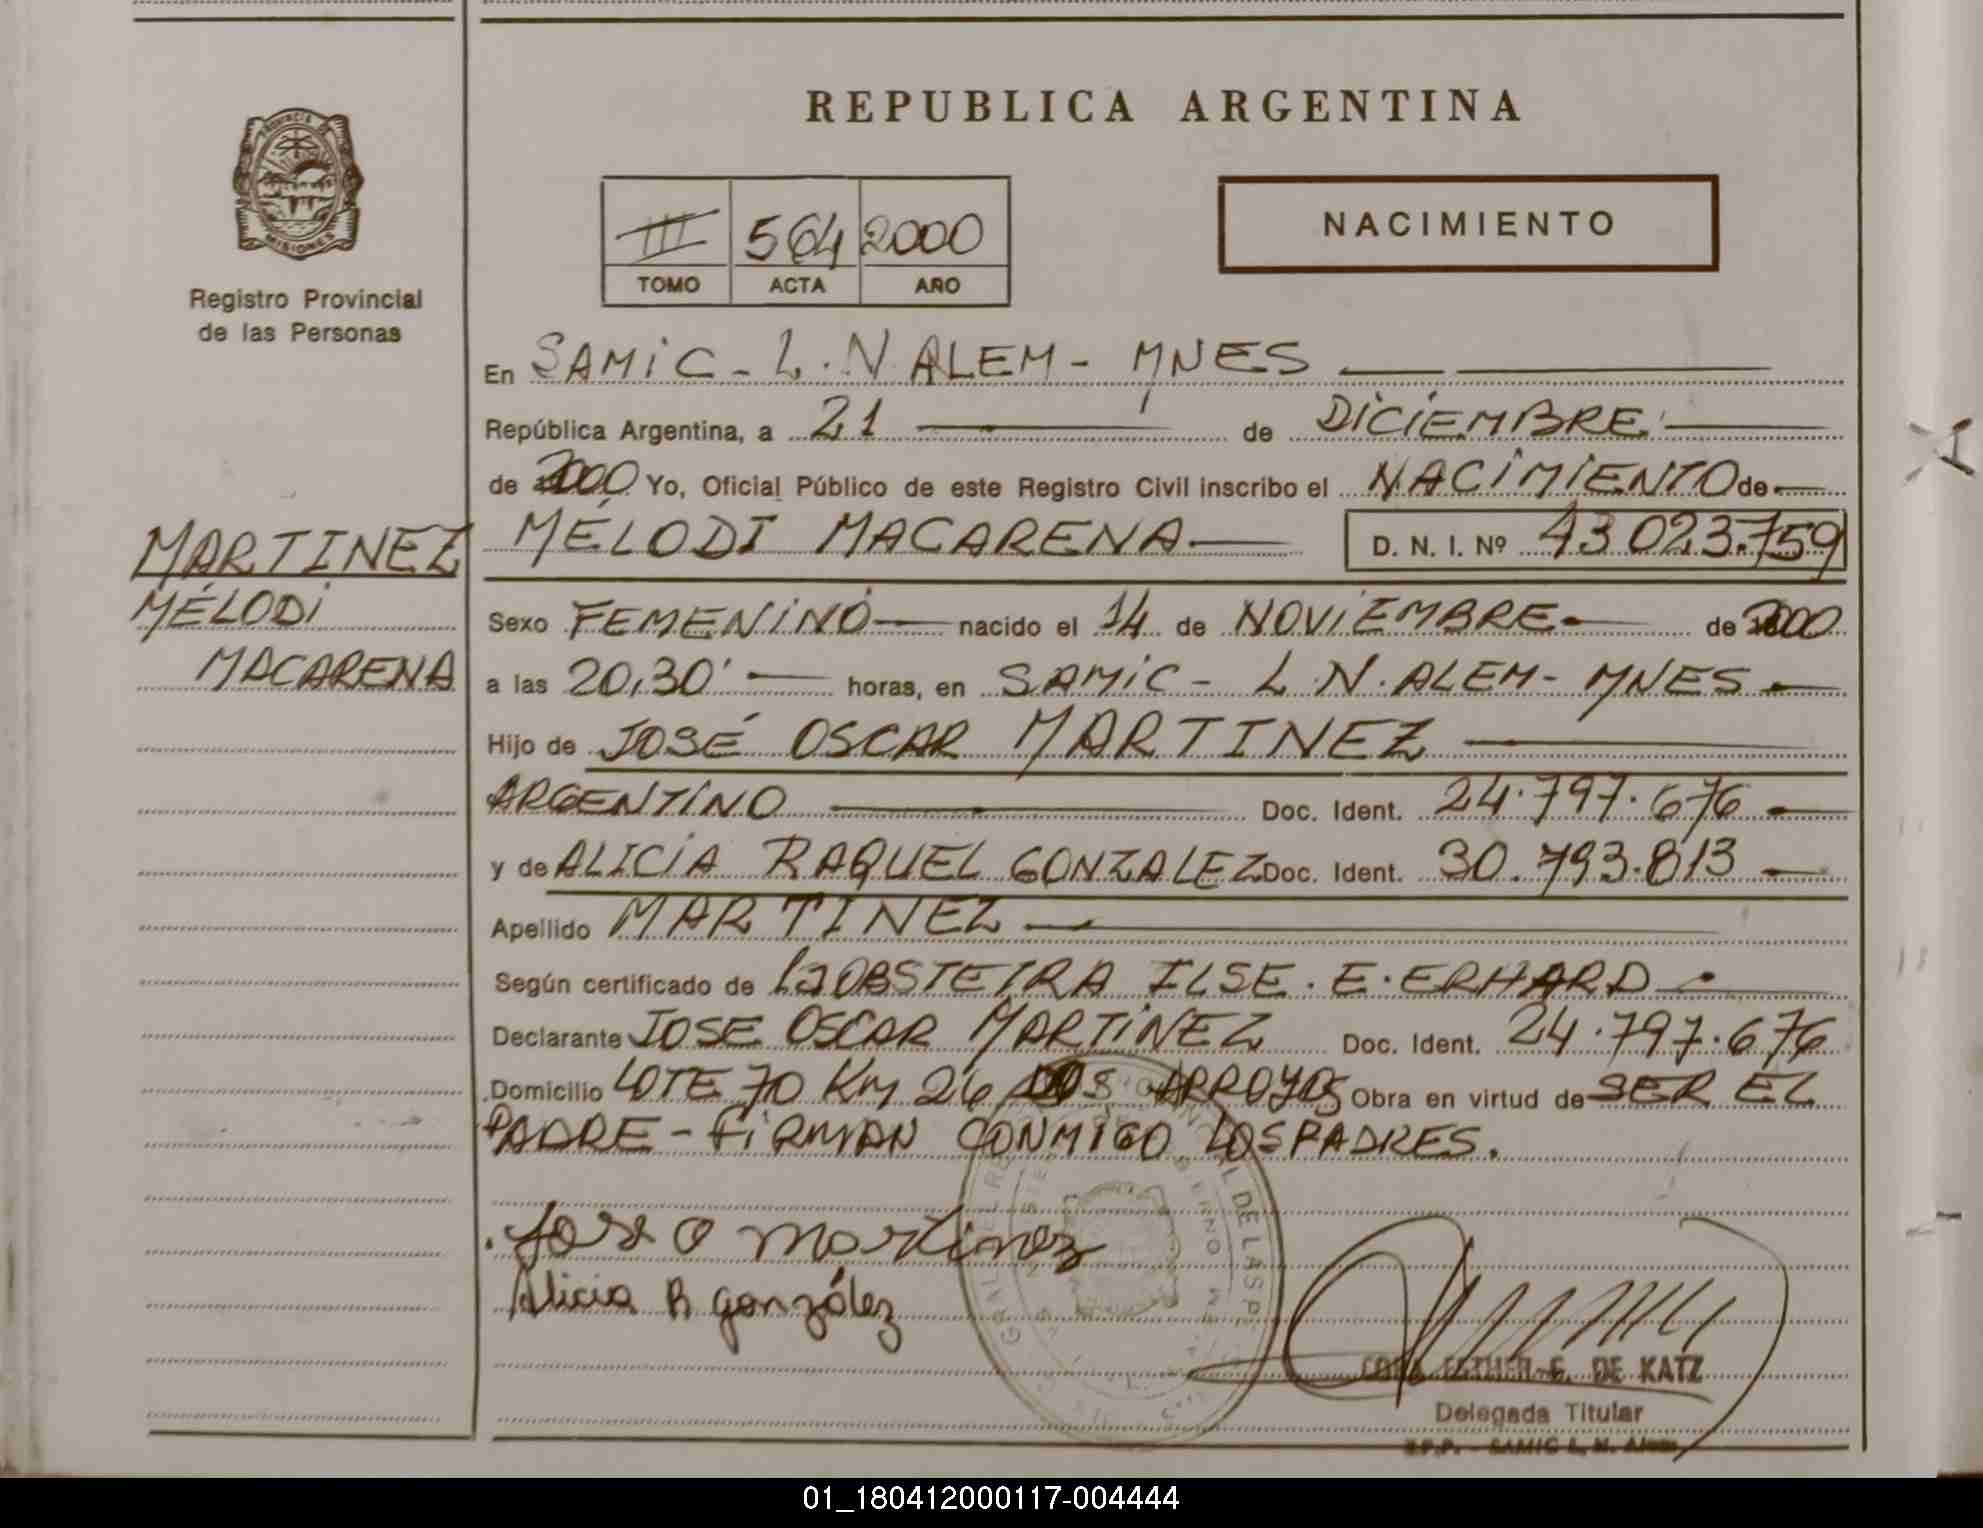 REPUBLICA ARGENTINA
PROVINCIA DE
MISIONES
Registro Provincial
de las Personas
III 564 2000
TOMO ACTA AÑO
NACIMIENTO
En SAMiC - L.N.ALEM - MNES
República Argentina, a 21 de DICIEMBRE
de 2000 Yo, Oficial Público de este Registro Civil inscribo el NACIMIENTO de
MÉLODI MACARENA D. N. I. Nº 43.023.759
MARTINEZ
MÉLODI
MACARENA
Sexo FEMENINO nacido el 14 de NOVIEMBRE de 2000
a las 20,30' horas, en SAMiC - L.N.ALEM - MNES
Hijo de JOSÉ OSCAR MARTINEZ
ARGENTINO Doc. Ident. 24.797.676
y de ALICIA RAQUEL GONZALEZ Doc. Ident. 30.793.813
Apellido MARTINEZ
Según certificado de OBSTETRA ILSE. E. ERHARD
Declarante JOSE OSCAR MARTINEZ Doc. Ident. 24.797.676
Domicilio LOTE 70 KM 26 DOS ARROYOS Obra en virtud de SER EL
PADRE - FIRMAN CONMIGO LOS PADRES.
Jose O martinez
Alicia R gonzález
ESTHER E. DE KATZ
Delegada Titular
SAMIC L. N. Alem
01_180412000117-004444